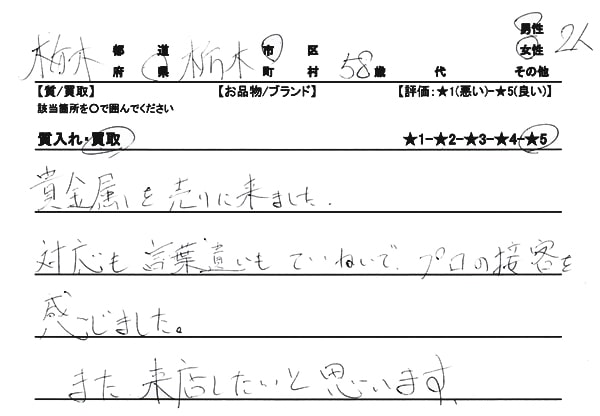 男性
栃木 都道 栃木 市区 女性 2人
府県 町村 58歳 代 その他
【質/買取】 【お品物/ブランド】 【評価:★1(悪い)-★5(良い)】
該当箇所を〇で囲んでください
質入れ・買取 ★1-★2-★3-★4-★5
貴金属を売りに来ました.
対応も言葉遣いもていねいで、プロの接客を
感じました。
また来店したいと思います